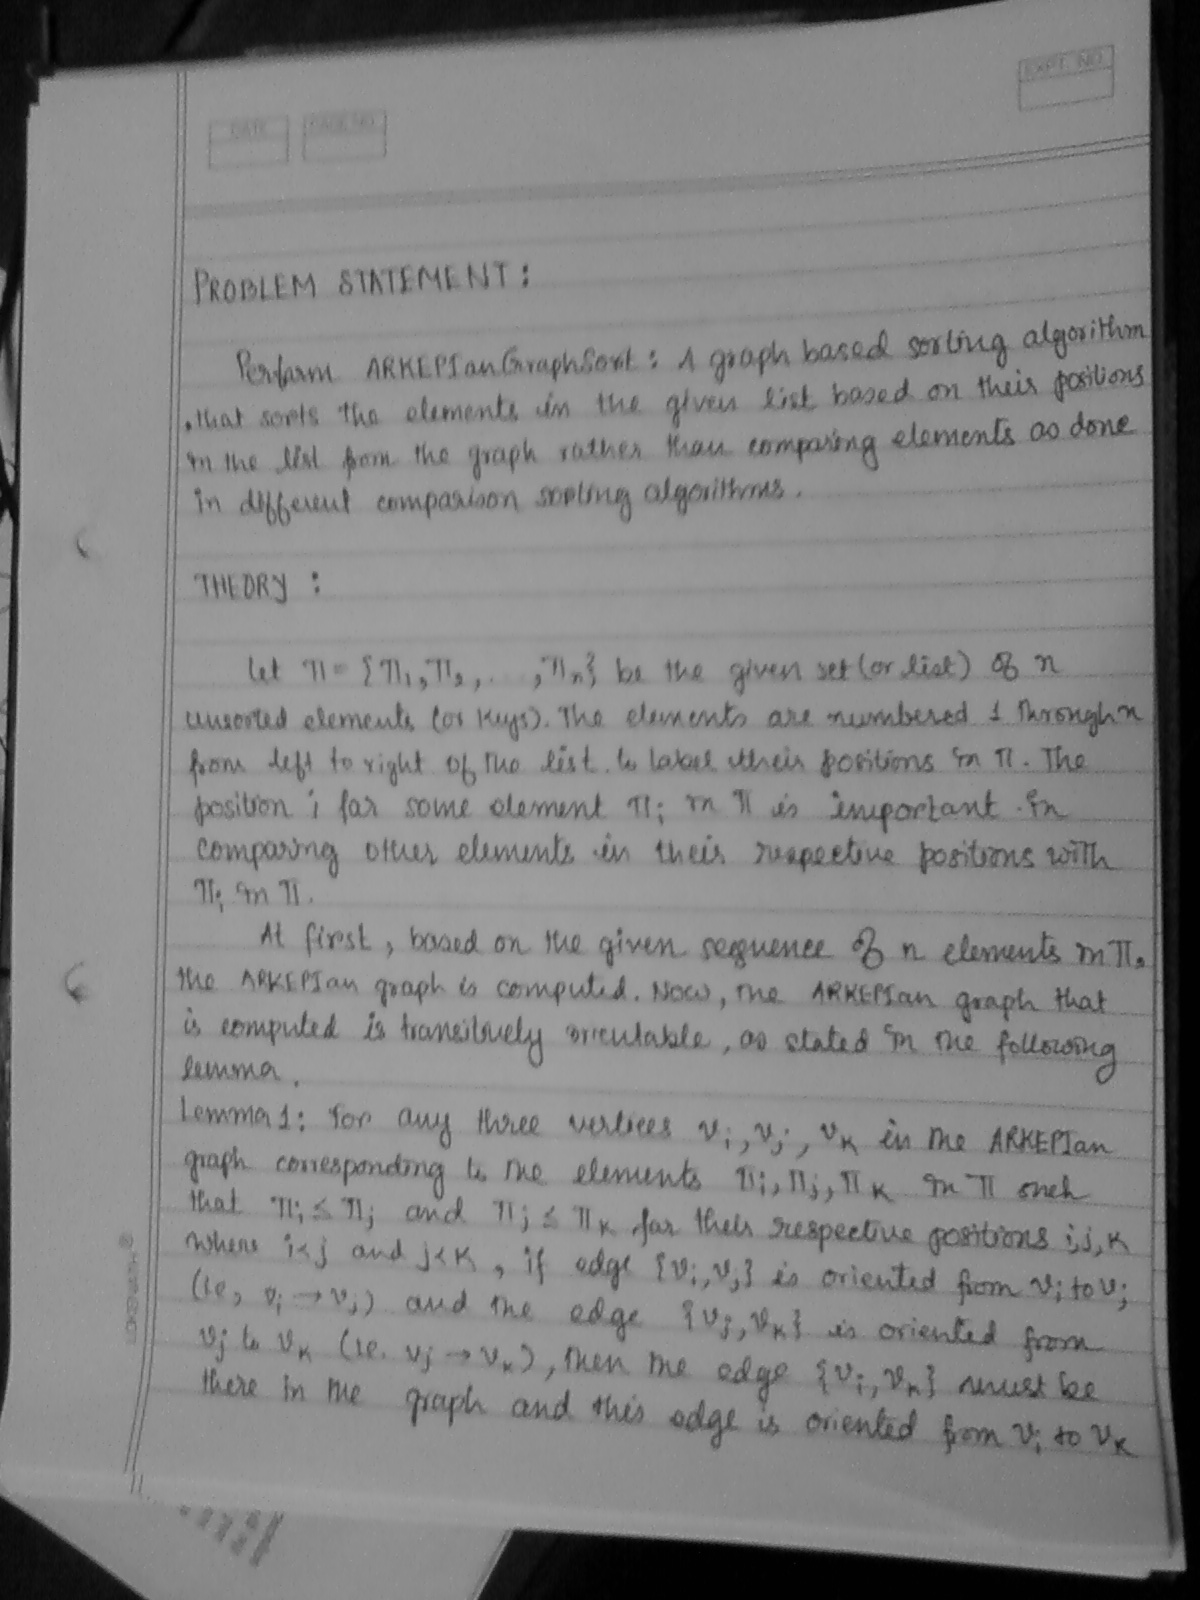 EXPT. NO.
DATE
PAGE NO.
PROBLEM STATEMENT :
Perform ARKEPIanGraphSort : A graph based sorting algorithm
that sorts the elements in the given list based on their positions
in the list from the graph rather than comparing elements as done
in different comparison sorting algorithms.
THEORY :
Let π = {π₁, π₂, ..., πₙ} be the given set (or list) of n
unsorted elements (or keys). The elements are numbered 1 through n
from left to right of the list to label their positions in π. The
position i for some element πᵢ in π is important in
comparing other elements in their respective positions with
πᵢ in π.
At first, based on the given sequence of n elements in π,
the ARKEPIan graph is computed. Now, the ARKEPIan graph that
is computed is transitively orientable, as stated in the following
lemma.
Lemma 1: For any three vertices vᵢ, vⱼ, vₖ in the ARKEPIan
graph corresponding to the elements πᵢ, πⱼ, πₖ in π such
that πᵢ ≤ πⱼ and πⱼ ≤ πₖ for their respective positions i, j, k
where i<j and j<k, if edge {vᵢ, vⱼ} is oriented from vᵢ to vⱼ
(ie, vᵢ → vⱼ) and the edge {vⱼ, vₖ} is oriented from
vⱼ to vₖ (ie. vⱼ → vₖ), then the edge {vᵢ, vₖ} must be
there in the graph and this edge is oriented from vᵢ to vₖ